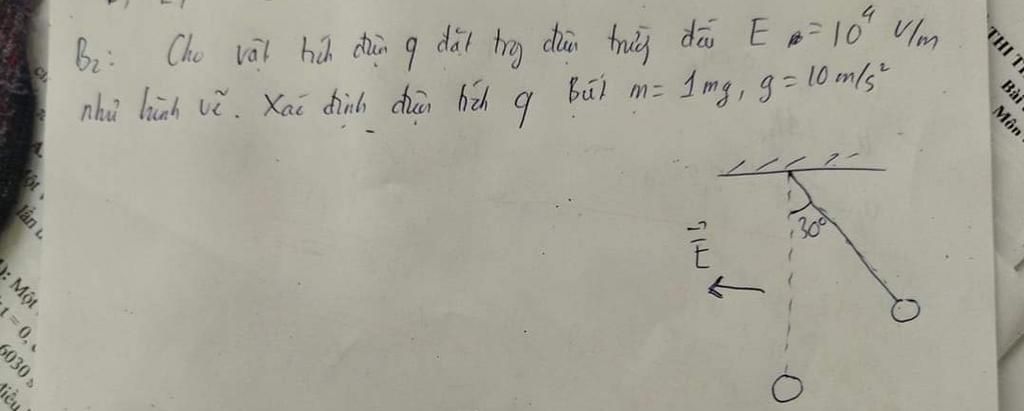 B2: Cho vật tích điện q đặt trg điện trường đều E = 10⁴ V/m
như hình vẽ. Xác định điện tích q Biết m = 1mg, g = 10 m/s²
30°
E
THI T
Bài
Môn
lần
Một
t = 0,
6030